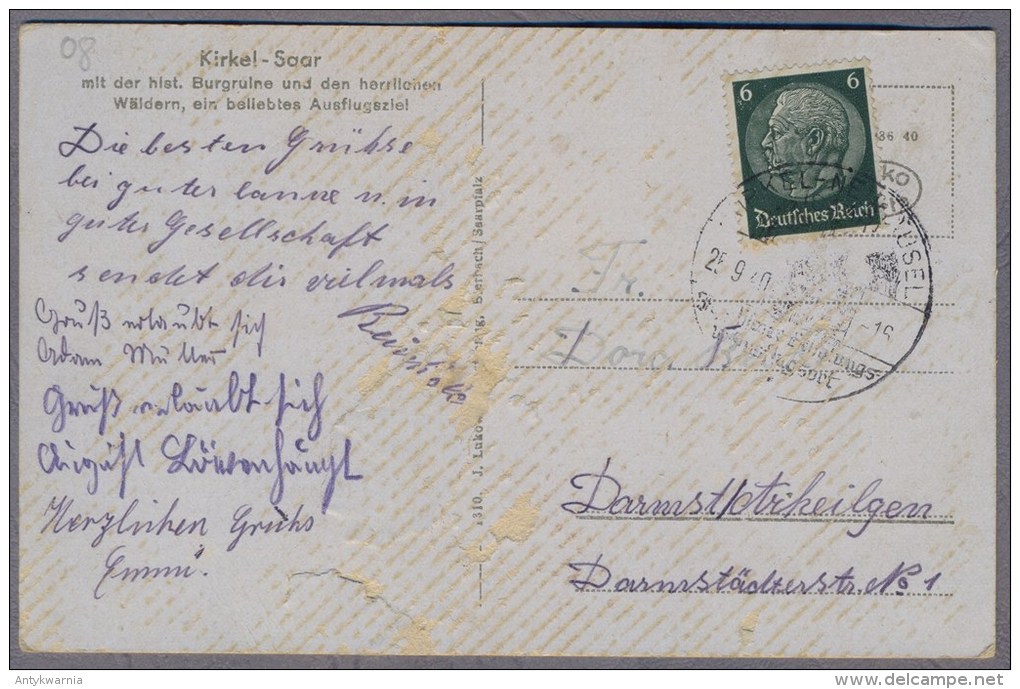 08
Kirkel-Saar
mit der hist. Burgruine und den herrlichen
Wäldern, ein beliebtes Ausflugsziel
Die besten Grühse
bei guter laune u. in
guter Gesellschaft
sendet die vilmals
Gruß erlaubt sich
Adam Müller
Gruß erlaubt sich
August Löwenhaupt
Herzlichen Gruhs
Emmi.
1310. J. Luko
erbach/Saarpfalz
6 6
Deutsches Reich
36 40
ko
25.9.40
-16
Fr.
Dora
Darmst/Arheilgen
Darmstädterstr. No 1
Antykwarnia
www.delcampe.net